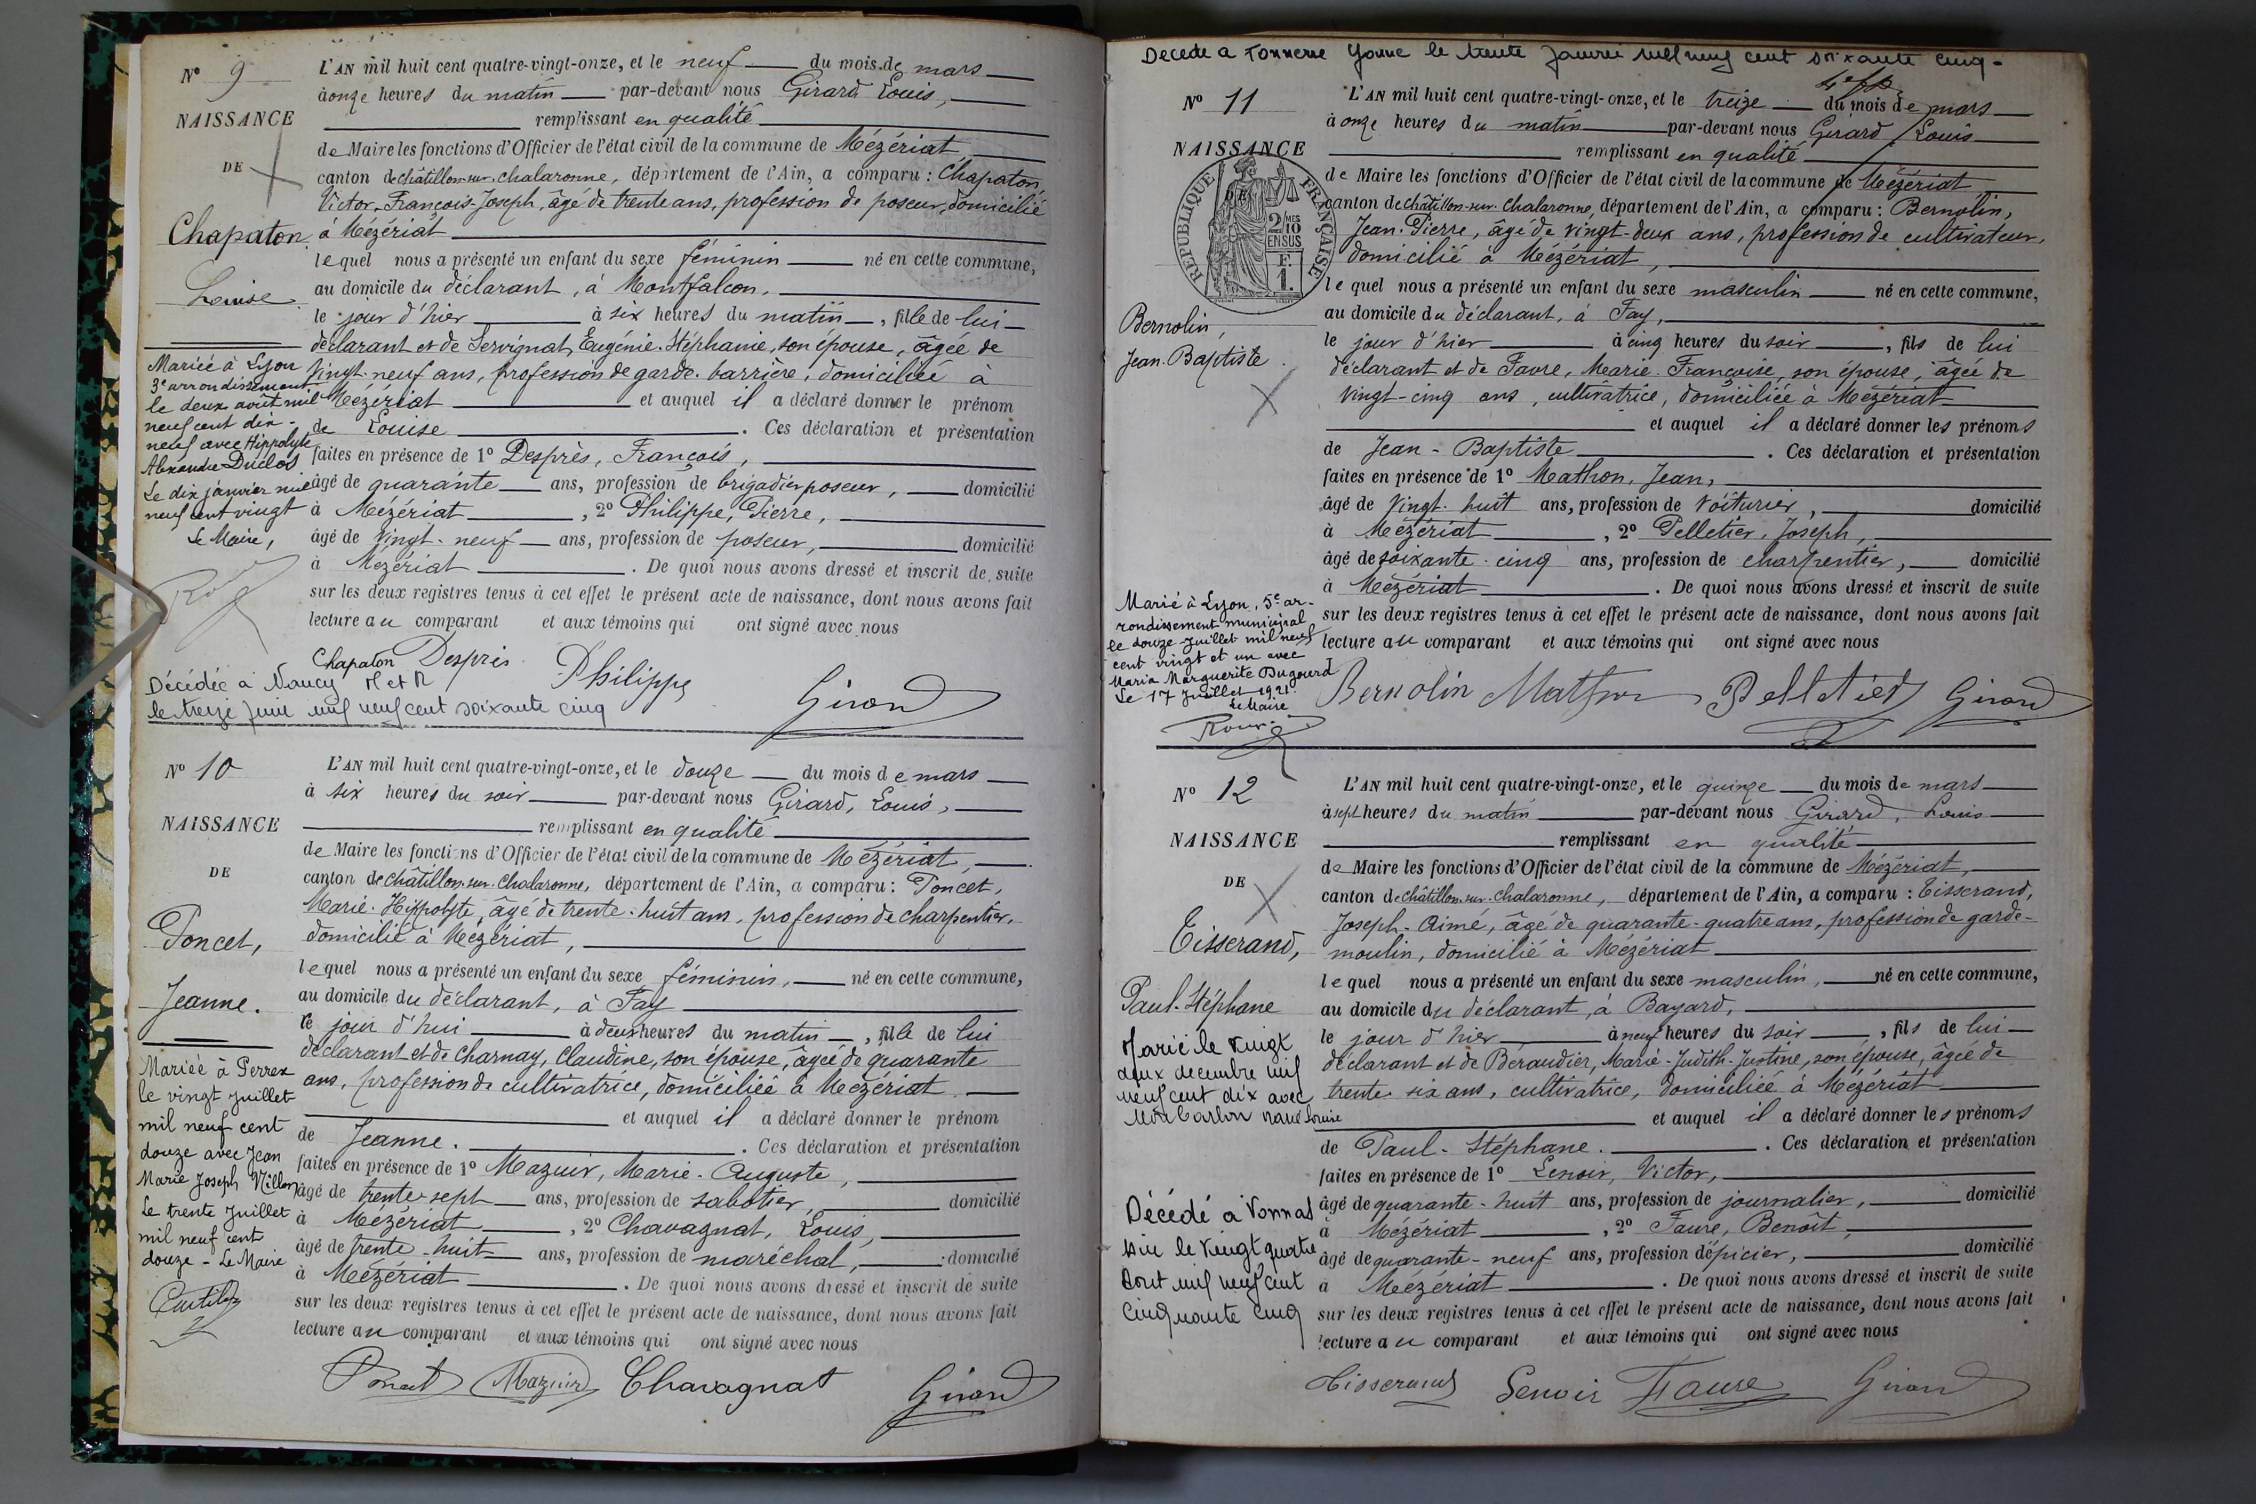 N° 9
NAISSANCE
DE
Chapaton
Louise
Mariée à Lyon
3e arrondissement
le deux août mil
neuf cent dix-
neuf avec Hippolyte
Alexandre Duclos
Le dix janvier mil
neuf cent vingt
Le Maire,
L'AN mil huit cent quatre-vingt-onze, et le neuf du mois de mars
à onze heures du matin par-devant nous Girard Louis,
remplissant en qualité
de Maire les fonctions d'Officier de l'état civil de la commune de Mézériat
canton de châtillon-sur-chalaronne, département de l'Ain, a comparu : Chapaton
Victor-François-Joseph, âgé de trente ans, profession de poseur, domicilié
à Mézériat
lequel nous a présenté un enfant du sexe féminin né en cette commune,
au domicile du déclarant, à Montfalcon,
le jour d'hier à six heures du matin, fille de lui
déclarant et de Servignat, Eugénie-Stéphanie, son épouse, âgée de
vingt-neuf ans, profession de garde-barrière, domiciliée à
Mézériat et auquel il a déclaré donner le prénom
de Louise . Ces déclaration et présentation
faites en présence de 1° Desprès, François,
âgé de quarante ans, profession de brigadier poseur, domicilié
à Mézériat, 2° Philippe, Pierre,
âgé de vingt-neuf ans, profession de poseur, domicilié
à Mézériat . De quoi nous avons dressé et inscrit de suite
sur les deux registres tenus à cet effet le présent acte de naissance, dont nous avons fait
lecture au comparant et aux témoins qui ont signé avec nous
Chapaton Despris Philippe Girard
Décédée à Nancy M et M
le treize Juin mil neuf cent soixante cinq
N° 10
NAISSANCE
DE
Poncet,
Jeanne.
Mariée à Perrex
le vingt juillet
mil neuf cent
douze avec Jean
Marie Joseph Millon
Le trente Juillet
mil neuf cent
douze - Le Maire
L'AN mil huit cent quatre-vingt-onze, et le douze du mois de mars
à six heures du soir par-devant nous Girard, Louis,
remplissant en qualité
de Maire les fonctions d'Officier de l'état civil de la commune de Mézériat,
canton de châtillon-sur-chalaronne, département de l'Ain, a comparu : Poncet,
Marie-Hippolyte, âgé de trente-huit ans, profession de charpentier,
domicilié à Mézériat,
lequel nous a présenté un enfant du sexe féminin, né en cette commune,
au domicile du déclarant, à Fay
le jour d'hui à deux heures du matin, fille de lui
déclarant et de Charnay, Claudine, son épouse, âgée de quarante
ans, profession de cultivatrice, domiciliée à Mézériat
et auquel il a déclaré donner le prénom
de Jeanne. . Ces déclaration et présentation
faites en présence de 1° Mazuir, Marie-Auguste,
âgé de trente-sept ans, profession de sabotier, domicilié
à Mézériat, 2° Chavagnat, Louis,
âgé de trente-huit ans, profession de maréchal, domicilié
à Mézériat . De quoi nous avons dressé et inscrit de suite
sur les deux registres tenus à cet effet le présent acte de naissance, dont nous avons fait
lecture au comparant et aux témoins qui ont signé avec nous
Poncet Mazuir Chavagnat Girard
Décédé à Tonnerre Yonne le trente Janvier mil neuf cent soixante cinq.
N° 11
NAISSANCE
DE
REPUBLIQUE FRANÇAISE
2 MES
10
EN SUS
F.
1.
Bernolin,
Jean-Baptiste
Marié à Lyon, 5e ar-
rondissement municipal
le douze juillet mil neuf
cent vingt et un avec
Maria Marguerite Dugourd
Le 17 Juillet 1921
Le Maire
L'AN mil huit cent quatre-vingt-onze, et le treize du mois de mars
à onze heures du matin par-devant nous Girard, Louis
remplissant en qualité
de Maire les fonctions d'Officier de l'état civil de la commune de Mézériat
canton de châtillon-sur-chalaronne, département de l'Ain, a comparu : Bernolin,
Jean-Pierre, âgé de vingt-deux ans, profession de cultivateur,
domicilié à Mézériat,
lequel nous a présenté un enfant du sexe masculin né en cette commune,
au domicile du déclarant, à Fay,
le jour d'hier à cinq heures du soir, fils de lui
déclarant et de Favre, Marie-Françoise, son épouse, âgée de
vingt-cinq ans, cultivatrice, domiciliée à Mézériat
et auquel il a déclaré donner les prénoms
de Jean-Baptiste . Ces déclaration et présentation
faites en présence de 1° Mathon, Jean,
âgé de vingt-huit ans, profession de voiturier, domicilié
à Mézériat, 2° Pelletier, Joseph,
âgé de soixante-cinq ans, profession de charpentier, domicilié
à Mézériat . De quoi nous avons dressé et inscrit de suite
sur les deux registres tenus à cet effet le présent acte de naissance, dont nous avons fait
lecture au comparant et aux témoins qui ont signé avec nous
Bernolin Mathon Pelletier Girard
N° 12
NAISSANCE
DE
Tisserand,
Paul-Stéphane
Marié le vingt
deux décembre mil
neuf cent dix avec
Décédé à Vonnas
Ain le vingt quatre
Aout mil neuf cent
cinquante cinq
L'AN mil huit cent quatre-vingt-onze, et le quinze du mois de mars
à sept heures du matin par-devant nous Girard, Louis
remplissant en qualité
de Maire les fonctions d'Officier de l'état civil de la commune de Mézériat,
canton de châtillon-sur-chalaronne, département de l'Ain, a comparu : Tisserand,
Joseph-Aimé, âgé de quarante-quatre ans, profession de garde-
moulin, domicilié à Mézériat
lequel nous a présenté un enfant du sexe masculin, né en cette commune,
au domicile du déclarant, à Bayard,
le jour d'hier à neuf heures du soir, fils de lui
déclarant et de Béraudier, Marie-Judith-Justine, son épouse, âgée de
trente-six ans, cultivatrice, domiciliée à Mézériat
et auquel il a déclaré donner les prénoms
de Paul-Stéphane. . Ces déclaration et présentation
faites en présence de 1° Lenoir, Victor,
âgé de quarante-huit ans, profession de journalier, domicilié
à Mézériat, 2° Faure, Benoît,
âgé de quarante-neuf ans, profession d'épicier, domicilié
à Mézériat . De quoi nous avons dressé et inscrit de suite
sur les deux registres tenus à cet effet le présent acte de naissance, dont nous avons fait
lecture au comparant et aux témoins qui ont signé avec nous
Tisserand Lenoir Faure Girard